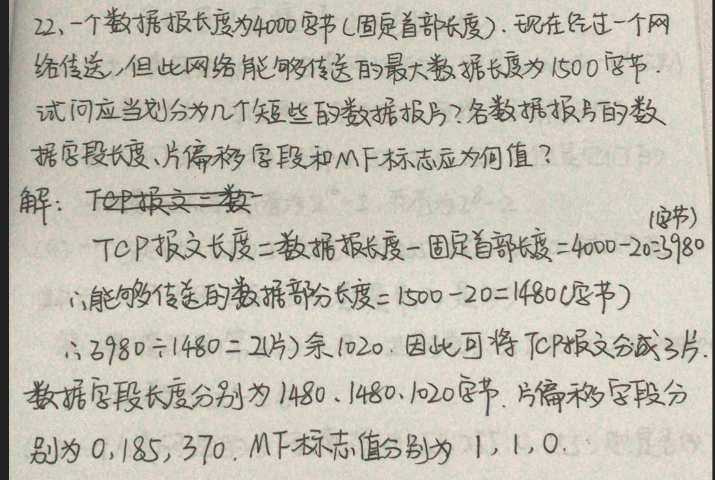 22、一个数据报长度为4000字节(固定首部长度).现在经过一个网
络传送,但此网络能够传送的最大数据长度为1500字节.
试问应当划分为几个短些的数据报片?各数据报片的数
据字段长度、片偏移字段和MF标志应为何值?
解: TCP报文=数
(字节)
TCP报文长度=数据报长度-固定首部长度=4000-20=3980
∴能够传送的数据部分长度=1500-20=1480(字节)
∴3980÷1480=2(片)余1020.因此可将TCP报文分成3片.
数据字段长度分别为1480、1480、1020字节.片偏移字段分
别为0,185,370.MF标志值分别为1,1,0.